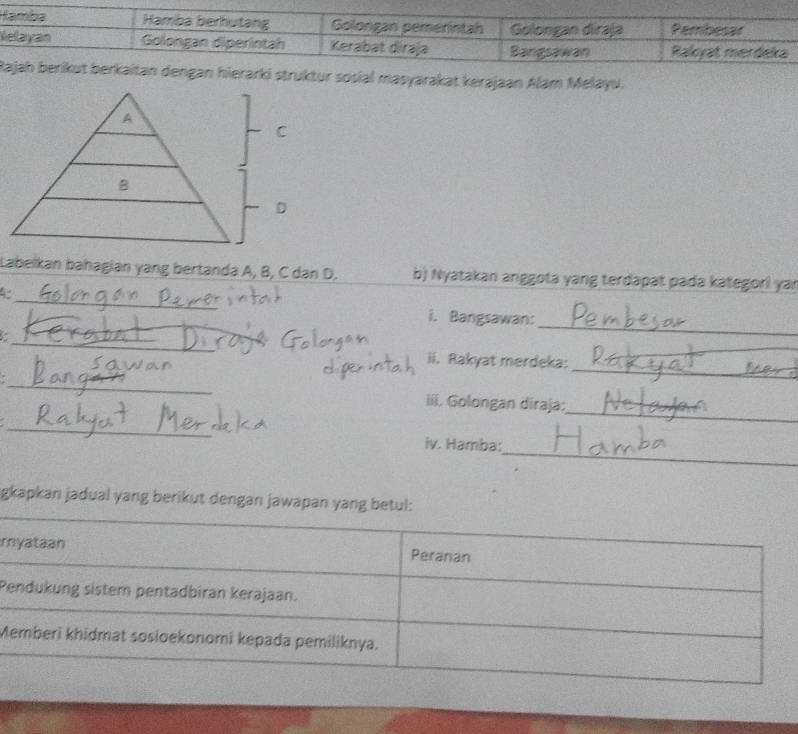 Hamba Hamba berhutang Golongan pemerintah Golongan diraja Pembesar
Nelayan Golongan diperintah Kerabat diraja Bangsawan Rakyat merdeka
Rajah berikut berkaitan dengan hierarki struktur sosial masyarakat kerajaan Alam Melayu.
A
C
B
D
Labelkan bahagian yang bertanda A, B, C dan D.
A: Golongan Pemerintah
Kerabat Diraja Golongan diperintah
Bangsawan
Rakyat Merdeka
b) Nyatakan anggota yang terdapat pada kategori
i. Bangsawan: Pembesar
ii. Rakyat merdeka: Rakyat Merd
iii. Golongan diraja: Nelayan
iv. Hamba: Hamba
gkapkan jadual yang berikut dengan jawapan yang betul:
rnyataan Peranan
Pendukung sistem pentadbiran kerajaan.
Memberi khidmat sosioekonomi kepada pemiliknya.